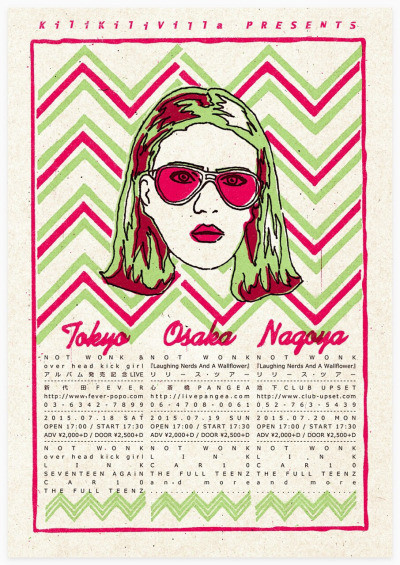 KiliKiliVilla PRESENTS
Tokyo Osaka Nagoya
NOT WONK &
over head kick girl
アルバム発売記念LIVE
新代田FEVER
http://www.fever-popo.com
03-6342-7899
2015.07.18 SAT
OPEN 17:00 / START 17:30
ADV ¥2,000+D / DOOR ¥2,500+D
NOT WONK
over head kick girl
LINK
SEVENTEEN AGAiN
CAR10
THE FULL TEENZ
NOT WONK
『Laughing Nerds And A Wallflower』
リリース・ツアー
心斎橋PANGEA
http://livepangea.com
06-4708-0061
2015.07.19 SUN
OPEN 17:00 / START 17:30
ADV ¥2,000+D / DOOR ¥2,500+D
NOT WONK
LINK
CAR10
THE FULL TEENZ
and more
NOT WONK
『Laughing Nerds And A Wallflower』
リリース・ツアー
池下CLUB UPSET
http://www.club-upset.com
052-763-5439
2015.07.20 MON
OPEN 17:00 / START 17:30
ADV ¥2,000+D / DOOR ¥2,500+D
NOT WONK
LINK
CAR10
THE FULL TEENZ
and more